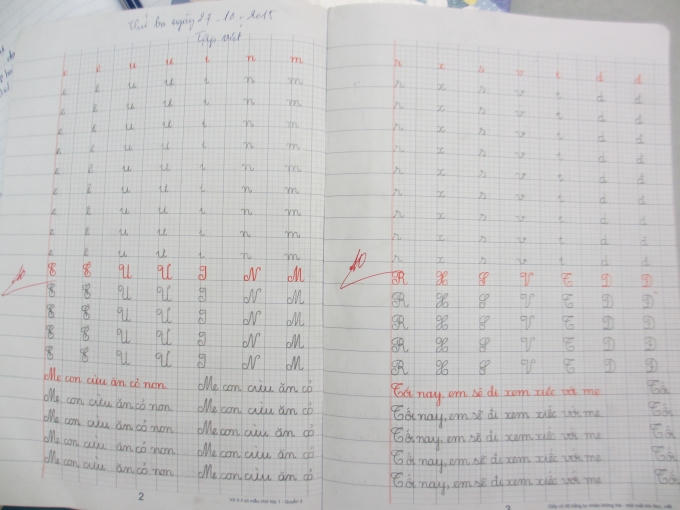 Thứ ba ngày 27-10-2015
Tập viết
e ê u ư i n m
e ê u ư i n m
e ê u ư i n m
e ê u ư i n m
e ê u ư i n m
e ê u ư i n m
e ê u ư i n m
e ê u ư i n m
e ê u ư i n m
e ê u ư i n m
10
E Ê U Ư I N M
E Ê U Ư I N M
E Ê U Ư I N M
E Ê U Ư I N M
E Ê U Ư I N M
Mẹ con cừu ăn cỏ non Mẹ con cừu ăn cỏ
Mẹ con cừu ăn cỏ non Mẹ con cừu ăn cỏ
Mẹ con cừu ăn cỏ non Mẹ con cừu ăn cỏ
Mẹ con cừu ăn cỏ non Mẹ con cừu ăn cỏ
Mẹ con cừu ăn cỏ non Mẹ con cừu ăn cỏ
2
r x s v t d đ
r x s v t d đ
r x s v t d đ
r x s v t d đ
r x s v t d đ
r x s v t d đ
r x s v t d đ
r x s v t d đ
r x s v t d đ
r x s v t d đ
10
R X S V T D Đ
R X S V T D Đ
R X S V T D Đ
R X S V T D Đ
R X S V T D Đ
Tối nay, em sẽ đi xem xiếc với mẹ Tối
Tối nay, em sẽ đi xem xiếc với mẹ Tối
Tối nay, em sẽ đi xem xiếc với mẹ Tối
Tối nay, em sẽ đi xem xiếc với mẹ Tối
Tối nay, em sẽ đi xem xiếc với mẹ Tối
3